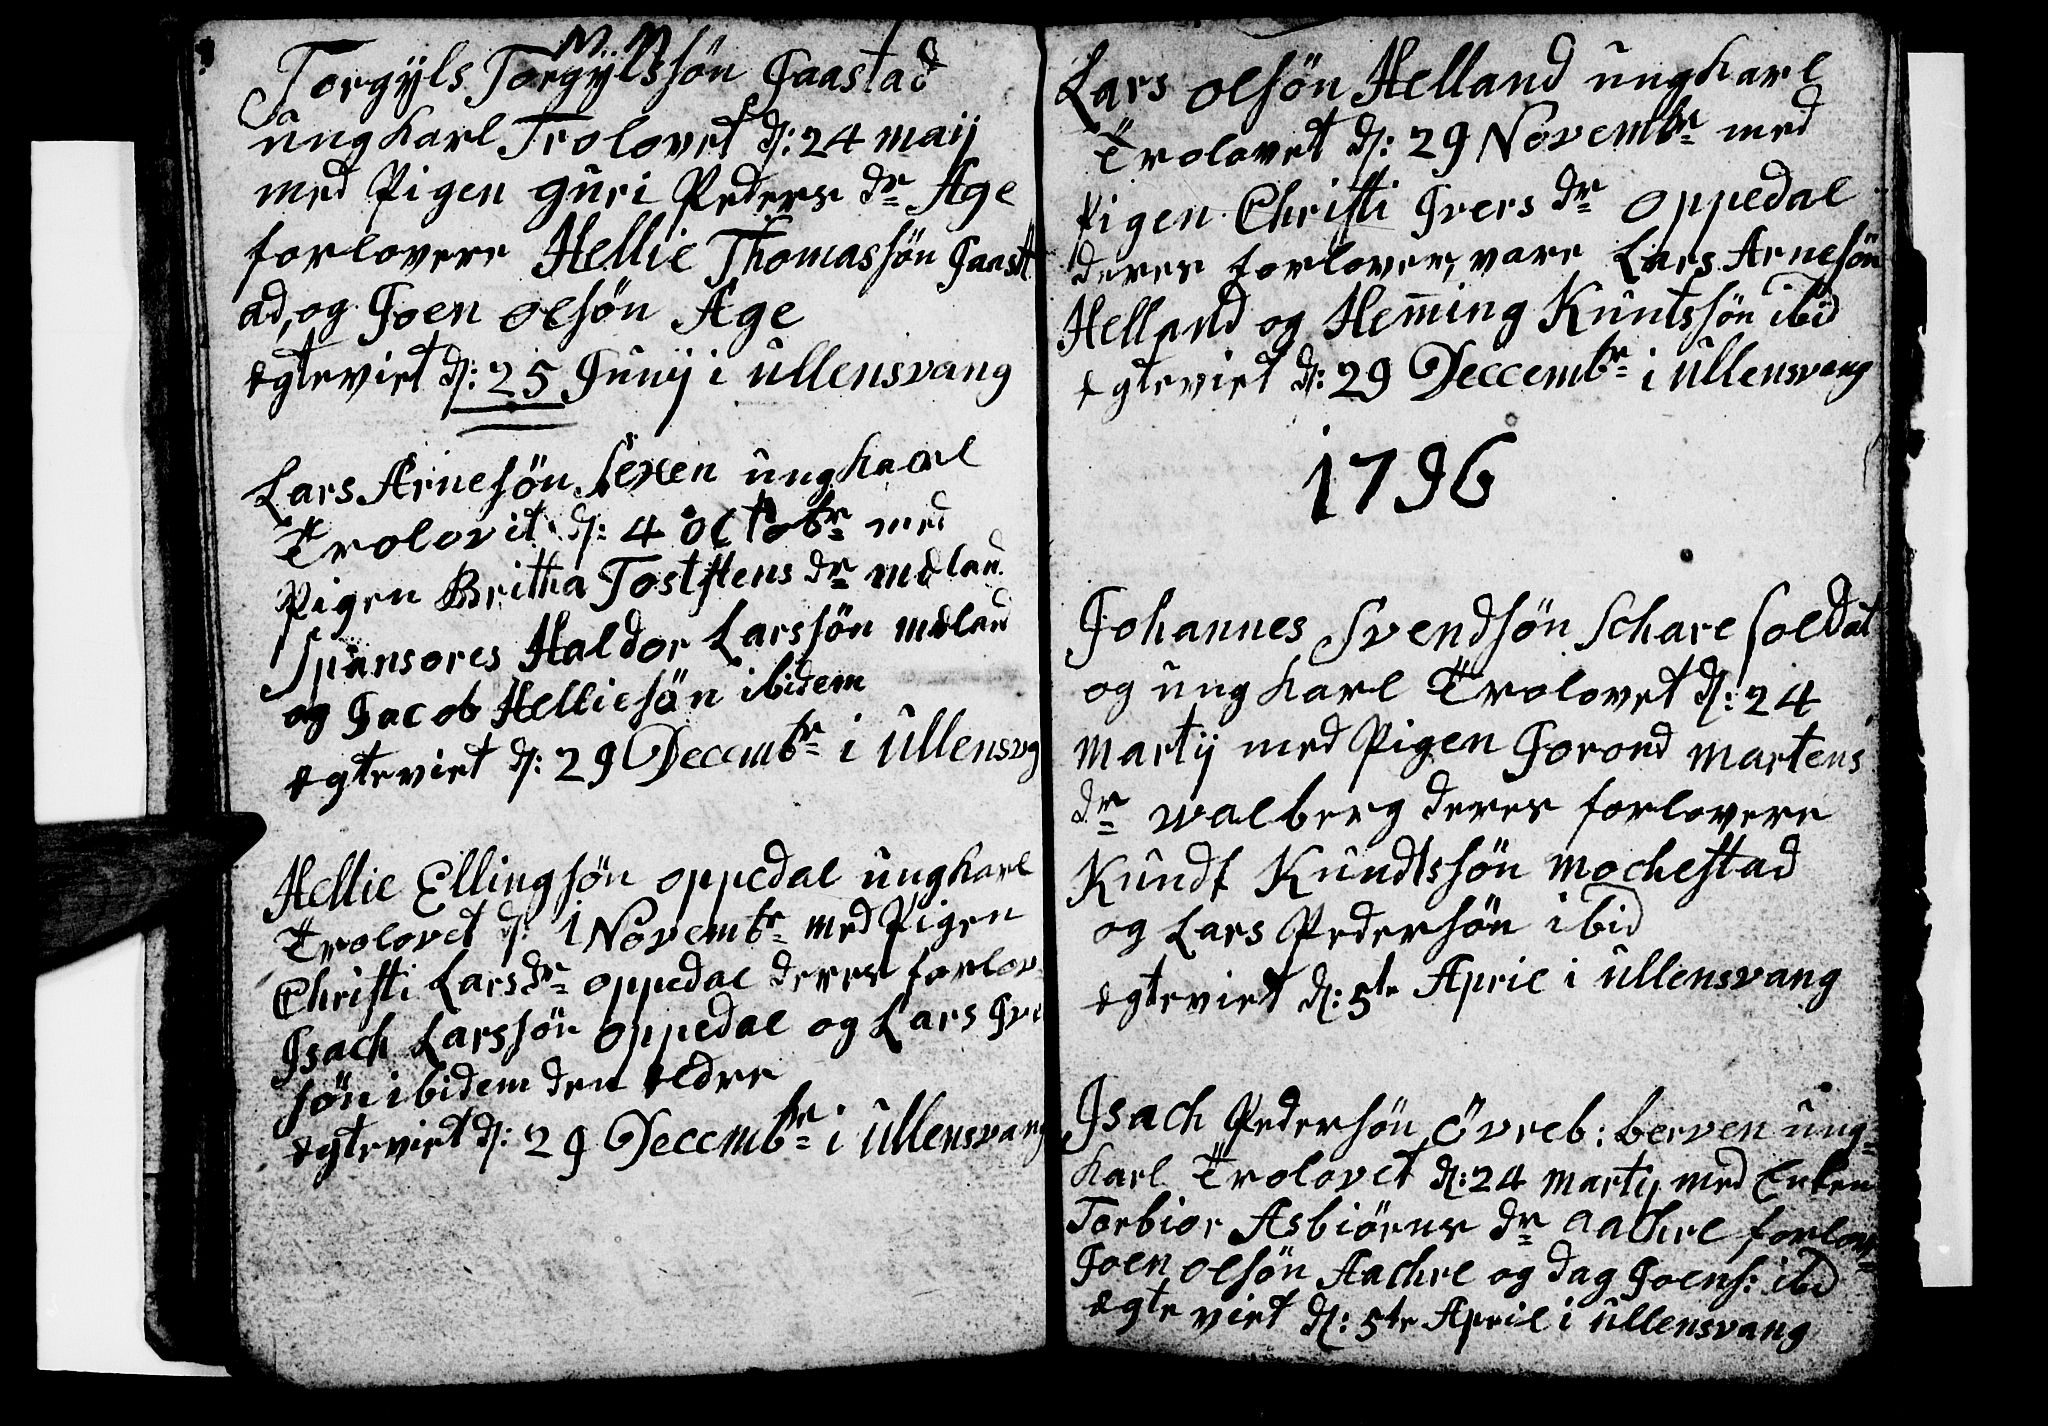 Torgÿls Torgÿlssön Jaastad
ungkarl Trolovet d: 24 maij
med Pigen guri Peders dr Age
forlovere Hellie Thomassön Jaast
ad, og Joen olsön Age
egteviet d: 25 Junij i ullensvang
Lars Arnesön Sexen ungkarl
Trolovit d: 4 octobr med
Pigen Britha Tostens dr mdland
Spansores Haldor Larssön mdland
og Jacob Helliesön ibidem
egteviet d: 29 Decembr i ullensvg
Hellie Ellingsön oppedal ungkarl
Trolovet d: 1 Novembr med Pigen
Christi Larsdr oppedal deres forlov
Isach Larssön oppedal og Lars Ive
sön ibidem den eldre
egteviet d: 29 Decembr i ullensvang
Lars olsön Helland ungkarl
Trolovet d: 29 Novembr med
Pigen Christi Ivers dr oppedal
deres forlover, vare Lars Arnesön
Helland og Heming Kuntssön ibid
egteviet d: 29 Deccembr i ullensvang
1796
Johannes Svendsön Schare soldat
og ungkarl Trolovet d: 24
martij med Pigen Jorond martens
dr walberg deres forlovere
Kundt Kundtssön mochestad
og Lars Pedersön ibid
egteviet d: 5te April i ullensvang
Isach Pedersön övreb: berven ung=
karl Trolovet d: 24 martij med Enken
Torbior Asbiörns dr Aachre forlov
Joen olsön Aachre og dag Joens: ibid
egteviet d: 5te April i ullensvang